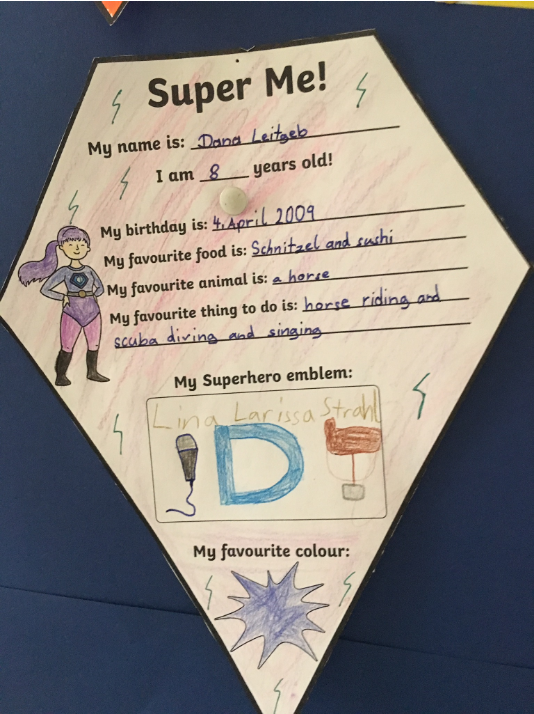 Super Me!
My name is: Dana Leitgeb
I am 8 years old!
My birthday is: 4. April 2009
My favourite food is: Schnitzel and sushi
My favourite animal is: a horse
My favourite thing to do is: horse riding and
scuba diving and singing
My Superhero emblem:
Lina Larissa Strahl
D
My favourite colour: